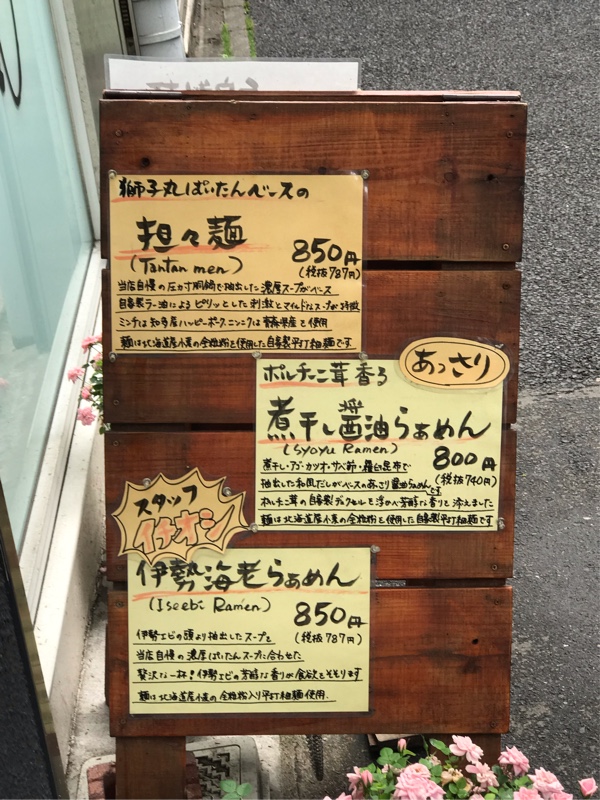 獅子丸ぱいたんベースの
担々麺
(Tantan men)
850円
(税抜787円)
当店自慢の圧力寸胴鍋で抽出した濃厚スープがベース
自家製ラー油によるピリッとした刺激とマイルドなスープが特徴
ミンチは知多産ハッピーポーク、ニンニクは青森県産を使用
麺は北海道産小麦の全粒粉を使用した自家製平打細麺です
あっさり
ポルチーニ茸香る
煮干し醤油らぁめん
(Syoyu Ramen)
800円
(税抜740円)
煮干し・アゴ・カツオ・サバ節・羅臼昆布で
抽出した和風だしがベースのあっさり醤油らぁめんです
ポルチーニ茸の自家製デュクセルを浮かべ芳醇な香りを添えました
麺は北海道産小麦の全粒粉を使用した自家製平打細麺です
スタッフ
イチオシ
伊勢海老らぁめん
(Iseebi Ramen)
850円
(税抜787円)
伊勢エビの頭より抽出したスープを
当店自慢の濃厚ぱいたんスープに合わせた
贅沢な一杯!伊勢エビの芳醇な香りが食欲をそそります
麺は北海道産小麦の全粒粉入り平打細麺使用.